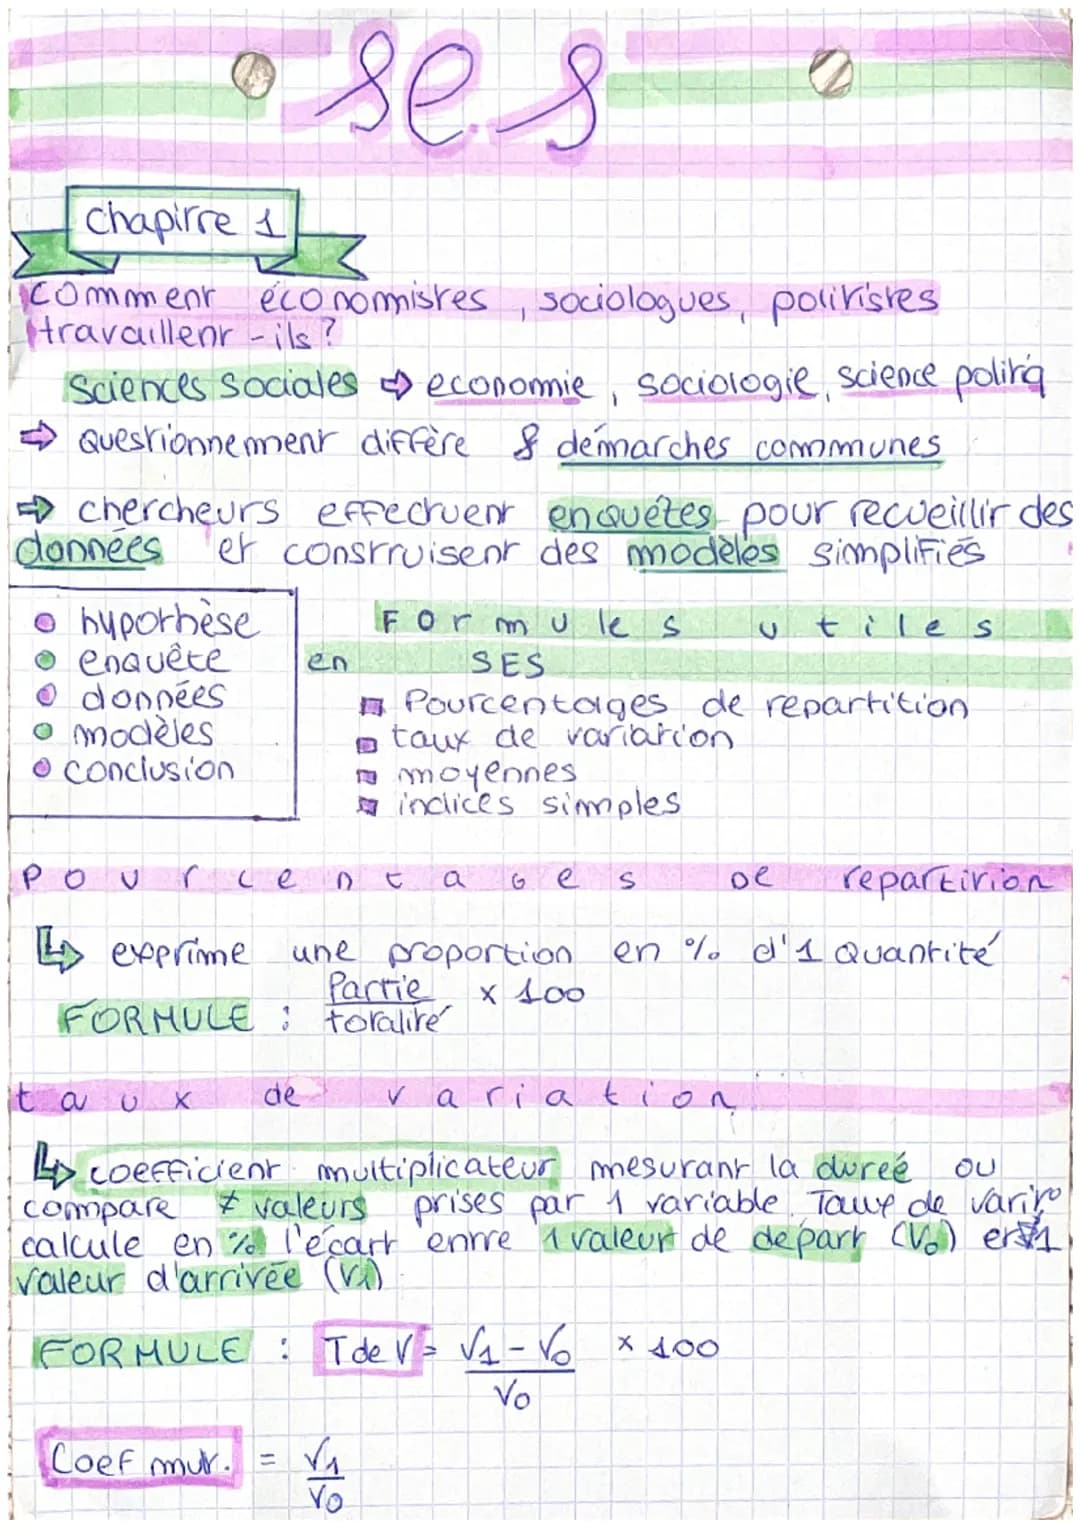 ses
chapitre 1
comment économistes, sociologues, politistes
travaillent-ils?
Sciences sociales ⇨ economie, sociologie, science politiq
⇨ questionnement diffère & démarches communes
⇨ chercheurs effectuent enquêtes pour recueillir des
données et construisent des modèles simplifiés
hypothèse
enquête
données
modèles
conclusion
Formules utiles
en SES
Pourcentages de repartition
taux de variation
moyennes
indices simples
Pourcentages de repartition
↳ exprime une proportion en % d'1 quantité
FORMULE : Partie / totalité x 100
taux de variation
↳ coefficient multiplicateur mesurant la dureé ou
compare ≠ valeurs prises par 1 variable. Taux de
calcule en % l'écart entre 1 valeur de départ (V0) et 1
valeur d'arrivée (V1)
FORMULE : T de V = V1 - V0 / V0 x 100
Coef mut. = V1 / V0